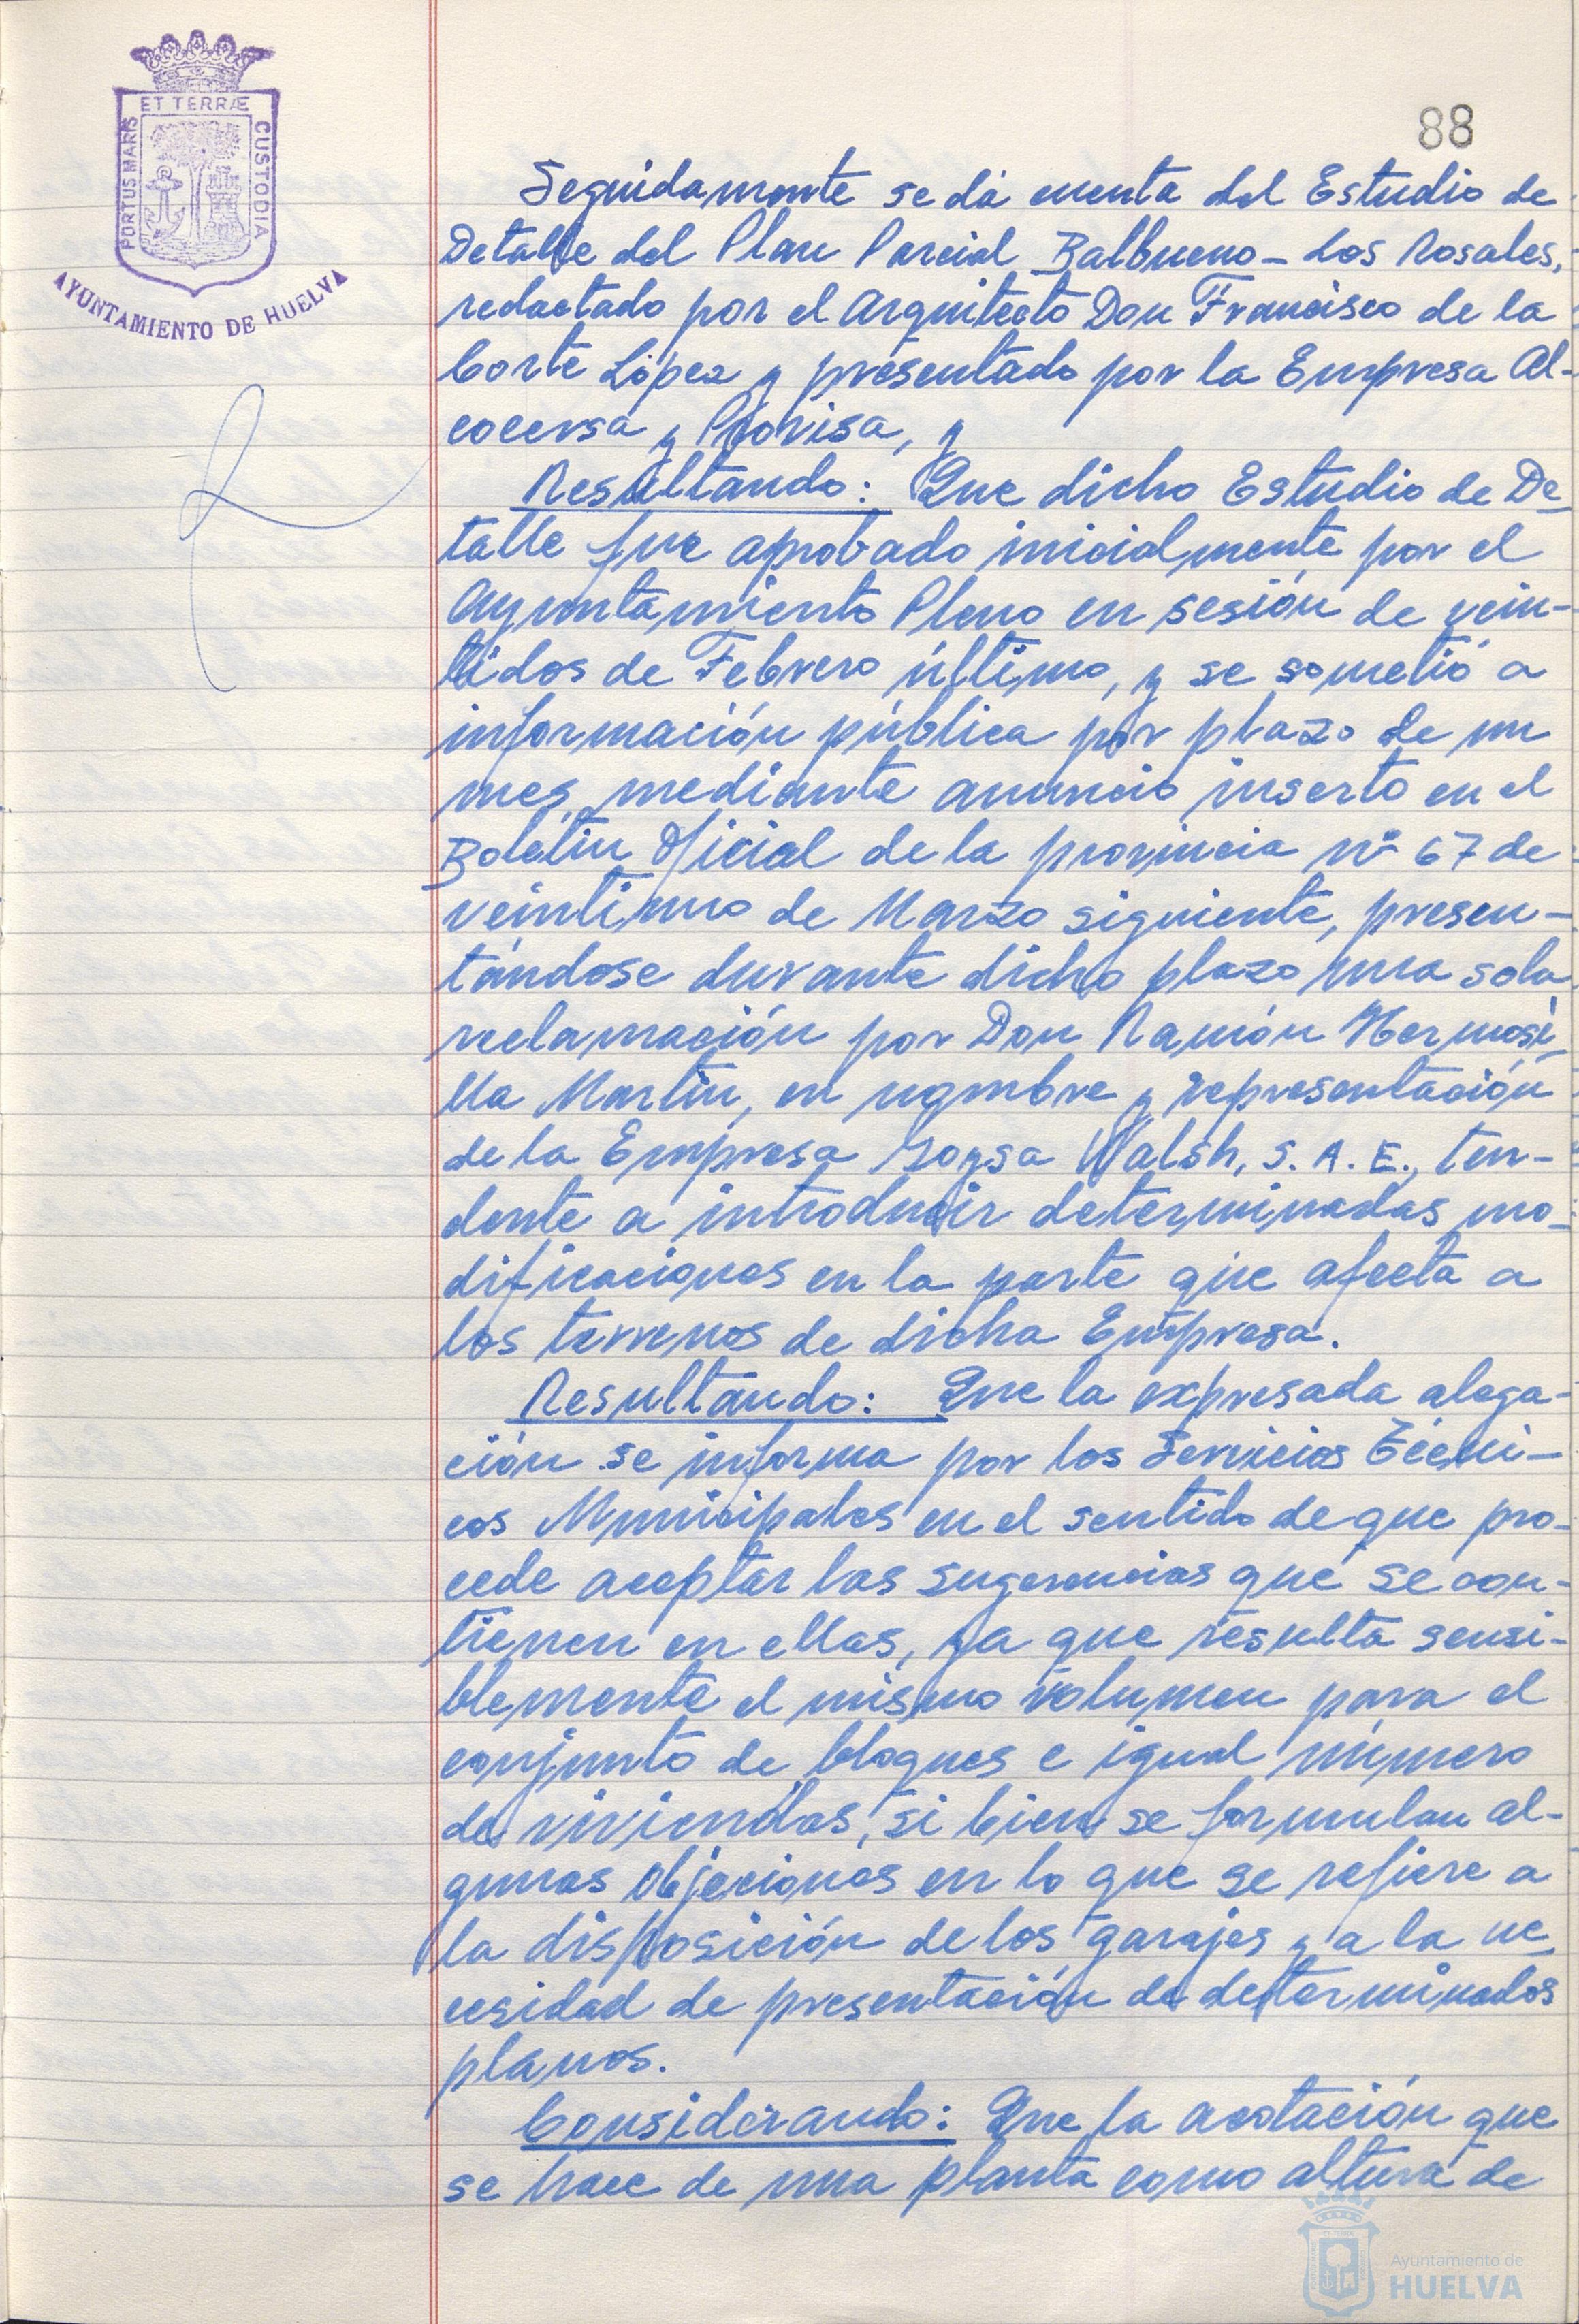 ET TERRÆ
PORTUS MARIS
CUSTODIA
AYUNTAMIENTO DE HUELVA
88
Seguidamente se dá cuenta del Estudio de
Detalle del Plan Parcial Balbueno - Los Rosales,
redactado por el Arquitecto Don Francisco de la
Corte López y presentado por la Empresa Al-
cocersa y Provisa, y
Resultando: Que dicho Estudio de De-
talle fue aprobado inicialmente por el
Ayuntamiento Pleno en sesión de vein-
tidos de Febrero último, y se sometió a
información pública por plazo de un
mes, mediante anuncio inserto en el
Boletín Oficial de la provincia nº 67 de
veintiuno de Marzo siguiente, presen-
tándose durante dicho plazo una sola
reclamación por Don Ramón Hermosi-
lla Martín, en nombre y representación
de la Empresa Goysa Walsh, S. A. E., ten-
dente a introducir determinadas mo-
dificaciones en la parte que afecta a
los terrenos de dicha Empresa.
Resultando: Que la expresada alega-
ción se informa por los Servicios Técni-
cos Municipales en el sentido de que pro-
cede aceptar las sugerencias que se con-
tienen en ellas, ya que resulta sensi-
blemente el mismo volumen para el
conjunto de bloques e igual número
de viviendas, si bien se formulan al-
gunas objeciones en lo que se refiere a
la disposición de los garajes y a la ne-
cesidad de presentación de determinados
planos.
Considerando: Que la acotación que
se hace de una planta como altura de
Ayuntamiento de
HUELVA